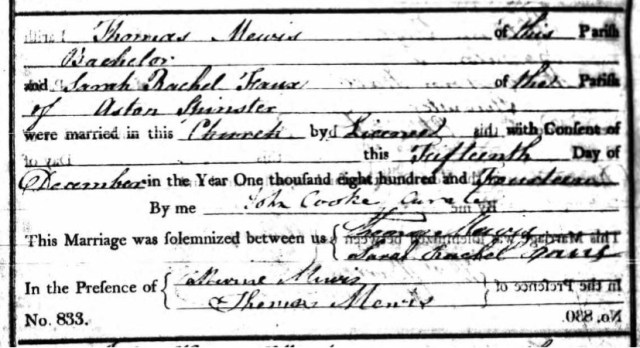 Thomas Mewis of this Parish
Bachelor
and Sarah Rachel Faux of the Parish
of Aston Spinster
were married in this Church by Licence with Consent of
this Fifteenth Day of
December in the Year One thousand eight hundred and Fourteen
By me John Cooke Curate
This Marriage was solemnized between us { Thomas Mewis
Sarah Rachel Faux
In the Presence of { Mewis
Thomas Mewis
No. 833.